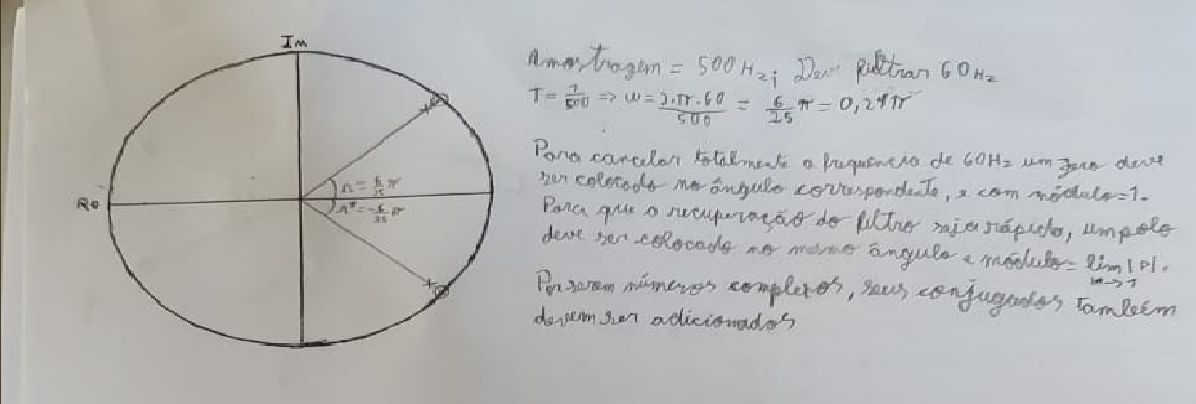 Im
Re
r = 6/25 π
r* = -6/25 π
Amostragem = 500Hz; Deve filtrar 60Hz
T = 1/500 => w = 2.π.60/500 = 6/25 π = 0,24π
Para cancelar totalmente a frequência de 60Hz um zero deve
ser colocado no ângulo correspondente, e com módulo=1.
Para que a recuperação do filtro seja rápida, um polo
deve ser colocado no mesmo ângulo e módulo = lim |p|.
Por serem números complexos, seus conjugados também
devem ser adicionados